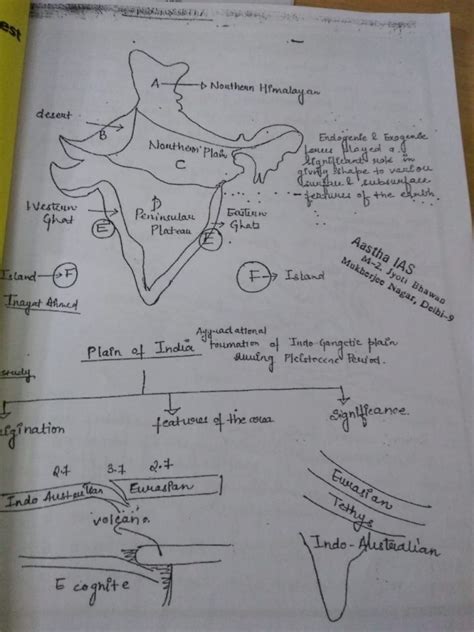 A → Northern Himalayan
desert
B
Northern Plain
C
Endogenic & Exogenic
forces played a.g
significant role in
giving shape to various
surface & subsurface
features of the earth.
Western
Ghat
D
Peninsular
Plateau
Eastern
Ghats
E
E
Aastha IAS
M-2, Jyoti Bhawan
Mukherjee Nagar, Delhi-9
Island → F
F → Island
Inayat Ahmed
Plain of India
Aggradational
formation of Indo-Gangetic plain
during Pleistocene Period.
study
features of the area
Significance.
2.7 3.7 2.7
Indo Australian
Eurasian
volcano
Ecognite
Eurasian
Tethys
Indo-Australian